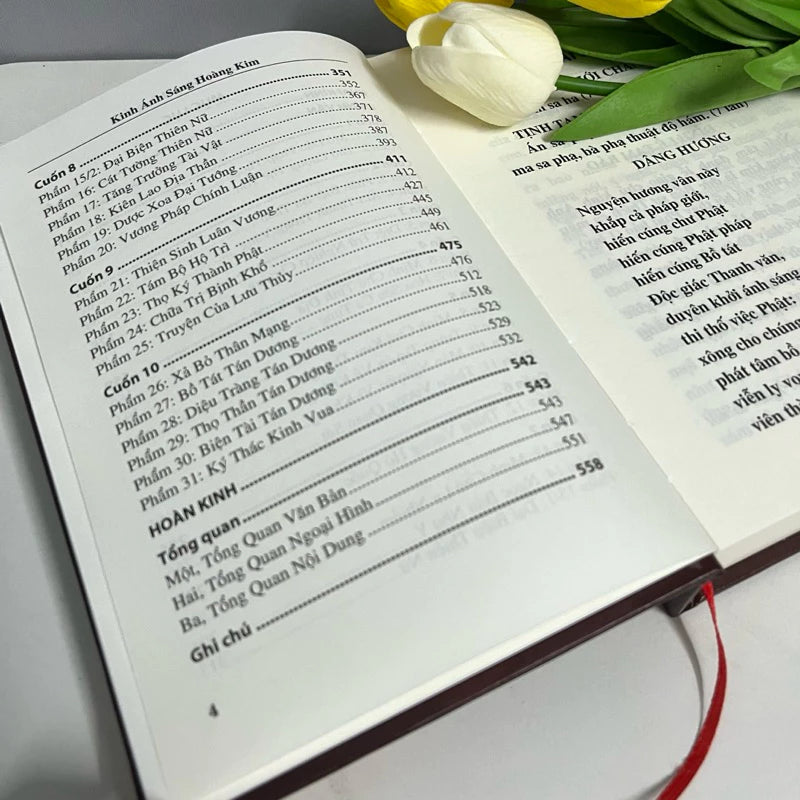 Kinh Ánh Sáng Hoàng Kim
Cuốn 8 351
Phẩm 15/2: Đại Biện Thiên Nữ 352
Phẩm 16: Cát Tường Thiên Nữ 367
Phẩm 17: Tăng Trưởng Tài Vật 371
Phẩm 18: Kiên Lao Địa Thần 378
Phẩm 19: Dược Xoa Đại Tướng 387
Phẩm 20: Vương Pháp Chính Luận 393
Cuốn 9 411
Phẩm 21: Thiện Sinh Luân Vương 412
Phẩm 22: Tám Bộ Hộ Trì 427
Phẩm 23: Thọ Ký Thành Phật 445
Phẩm 24: Chữa Trị Bịnh Khổ 449
Phẩm 25: Truyện Của Lưu Thủy 461
Cuốn 10 475
Phẩm 26: Xả Bỏ Thân Mạng 476
Phẩm 27: Bồ Tát Tán Dương 512
Phẩm 28: Diệu Tràng Tán Dương 518
Phẩm 29: Thọ Thần Tán Dương 523
Phẩm 30: Biện Tài Tán Dương 529
Phẩm 31: Ký Thác Kinh Vua 532
HOÀN KINH 542
Tổng quan 543
Một, Tổng Quan Văn Bản 543
Hai, Tổng Quan Ngoại Hình 547
Ba, Tổng Quan Nội Dung 551
Ghi chú 558
4
TỊNH
Án sa
ma sa phạ, bà phạ thuật độ hám. (7 lần)
DÂNG HƯƠNG
Nguyện hương vân này
khắp cả pháp giới,
hiến cúng chư Phật
hiến cúng Phật pháp
hiến cúng Bồ tát
Độc giác Thanh văn,
duyên khởi ánh sáng
thi thố việc Phật:
xông cho chúng
phát tâm bồ
viễn ly
viên